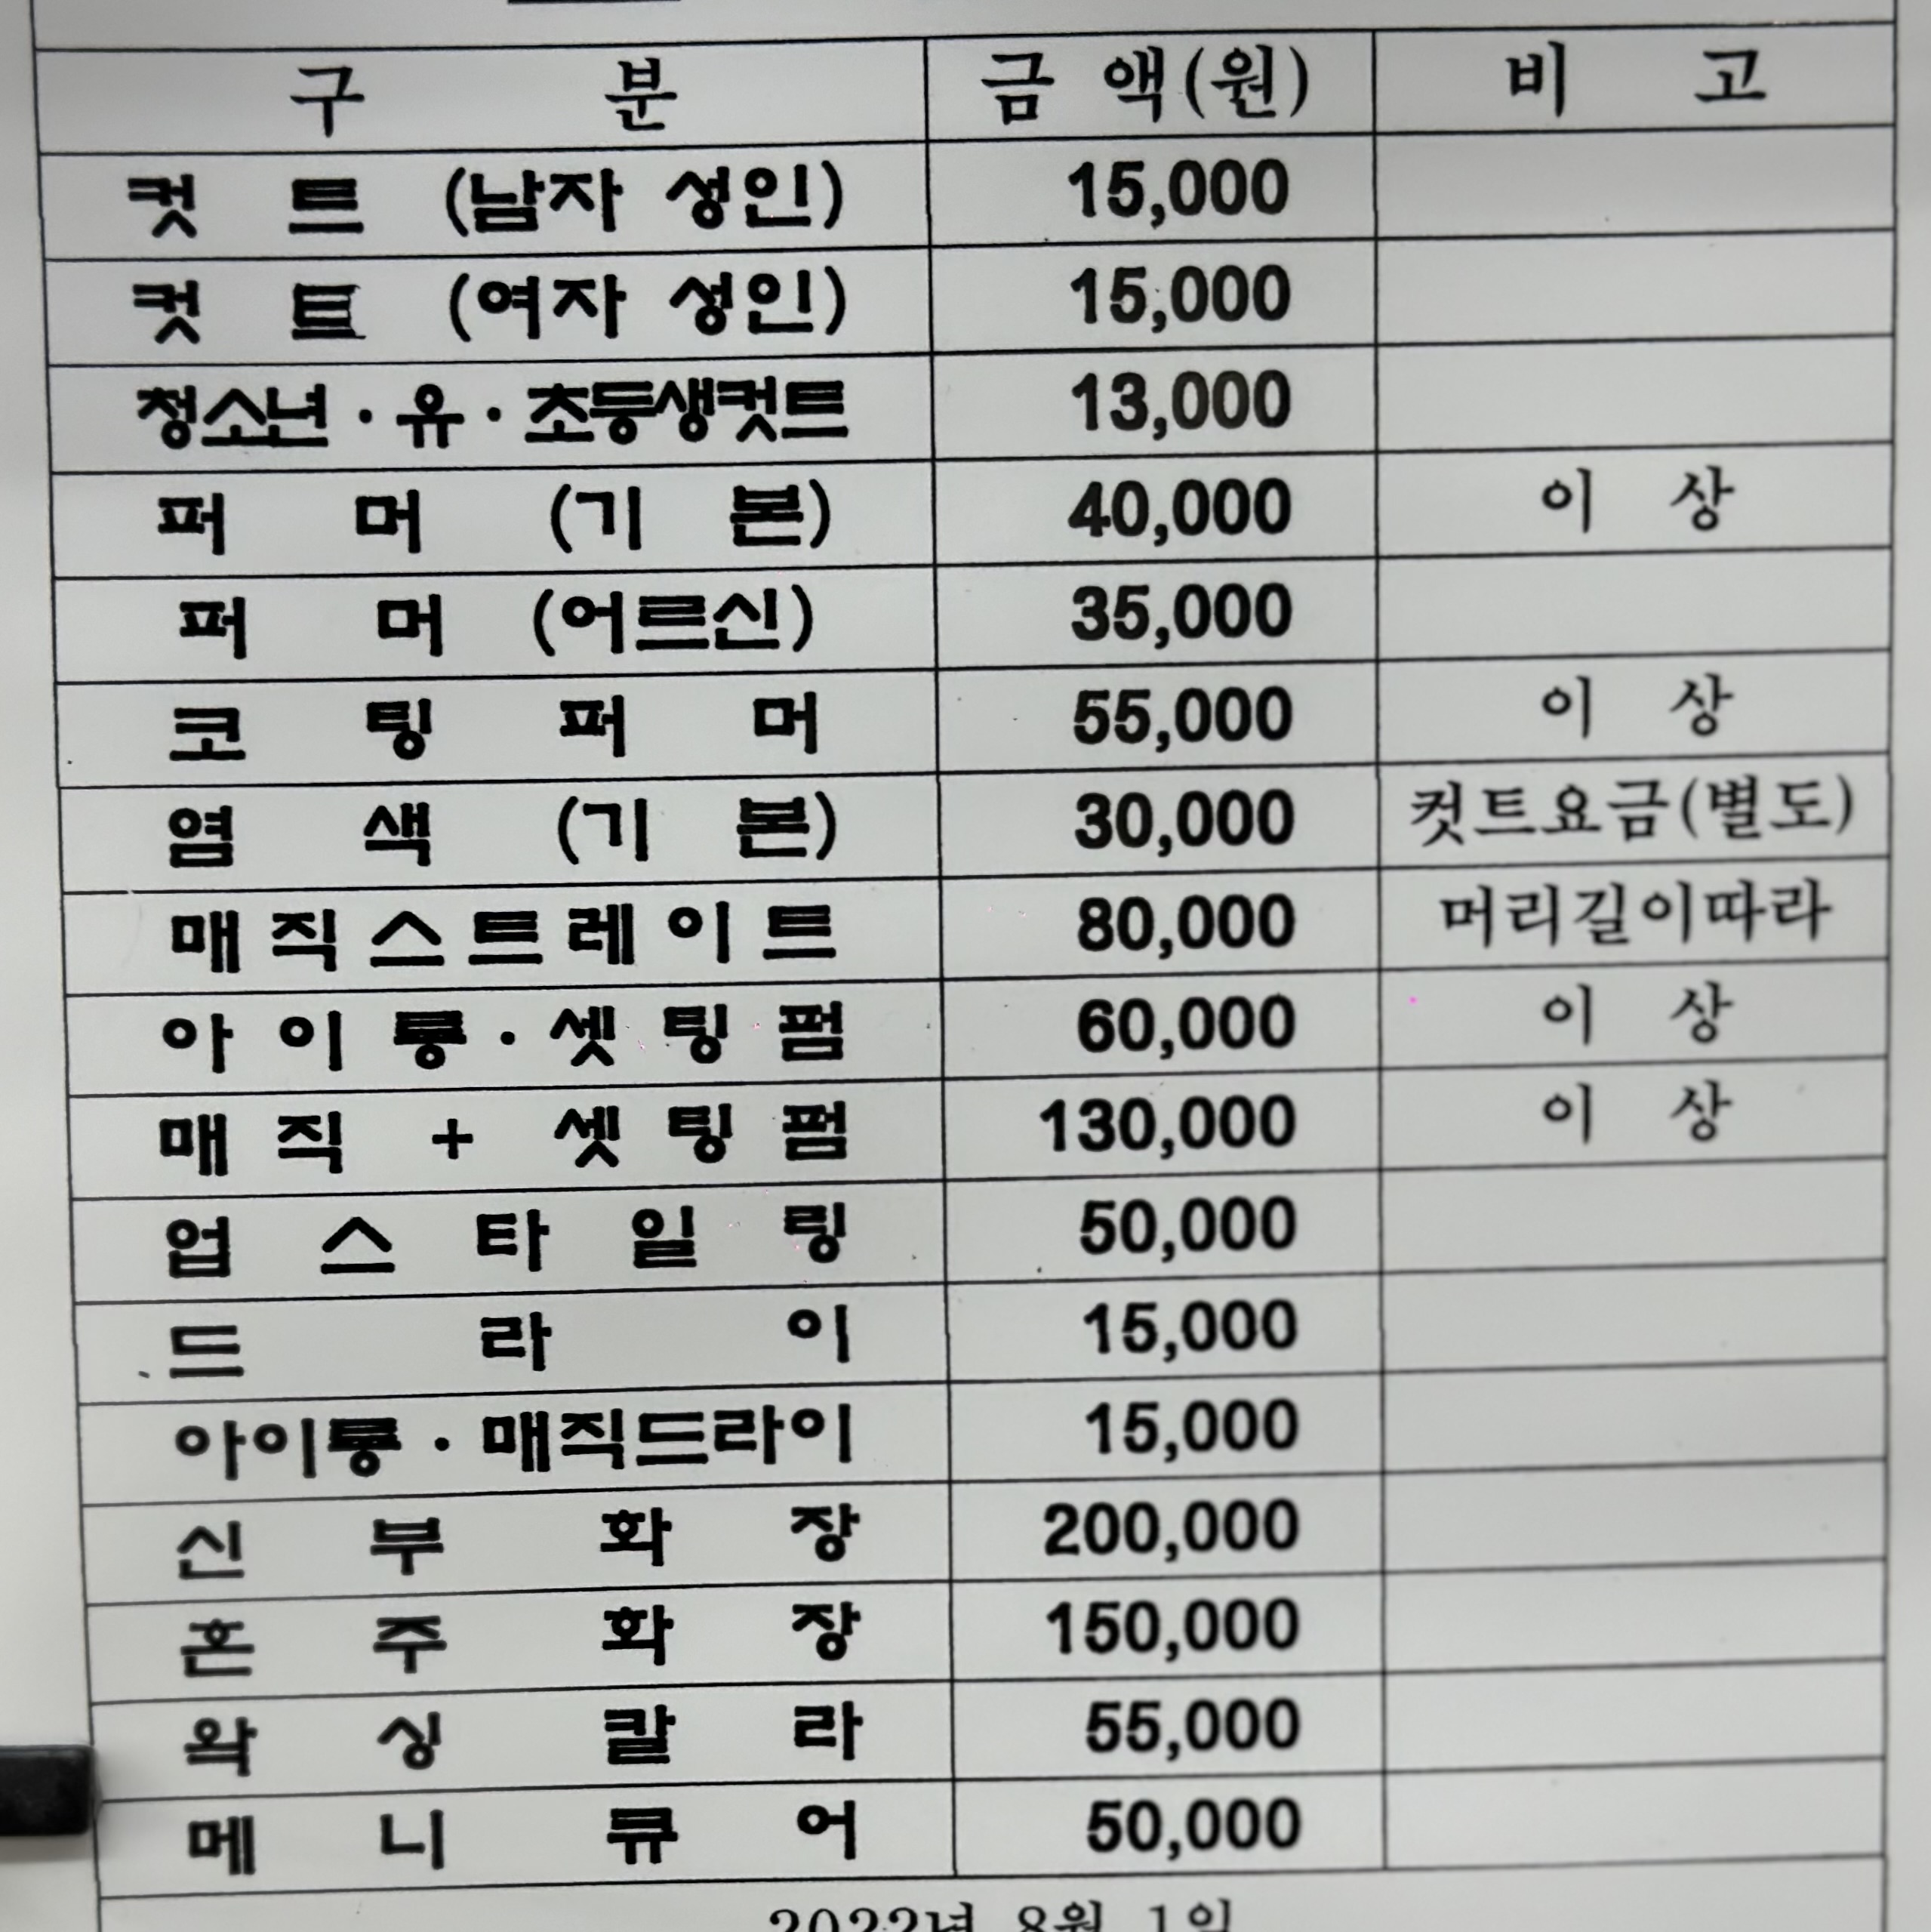 구 분 금 액(원) 비 고
컷 트 (남자 성인) 15,000
컷 트 (여자 성인) 15,000
청소년·유·초등생컷트 13,000
퍼 머 (기 본) 40,000 이 상
퍼 머 (어르신) 35,000
코 팅 퍼 머 55,000 이 상
염 색 (기 본) 30,000 컷트요금(별도)
매직스트레이트 80,000 머리길이따라
아 이 롱·셋 팅 펌 60,000 이 상
매 직 + 셋 팅 펌 130,000 이 상
업 스 타 일 링 50,000
드 라 이 15,000
아이롱·매직드라이 15,000
신 부 화 장 200,000
혼 주 화 장 150,000
왁 싱 칼 라 55,000
메 니 큐 어 50,000
2022년 8월 1일